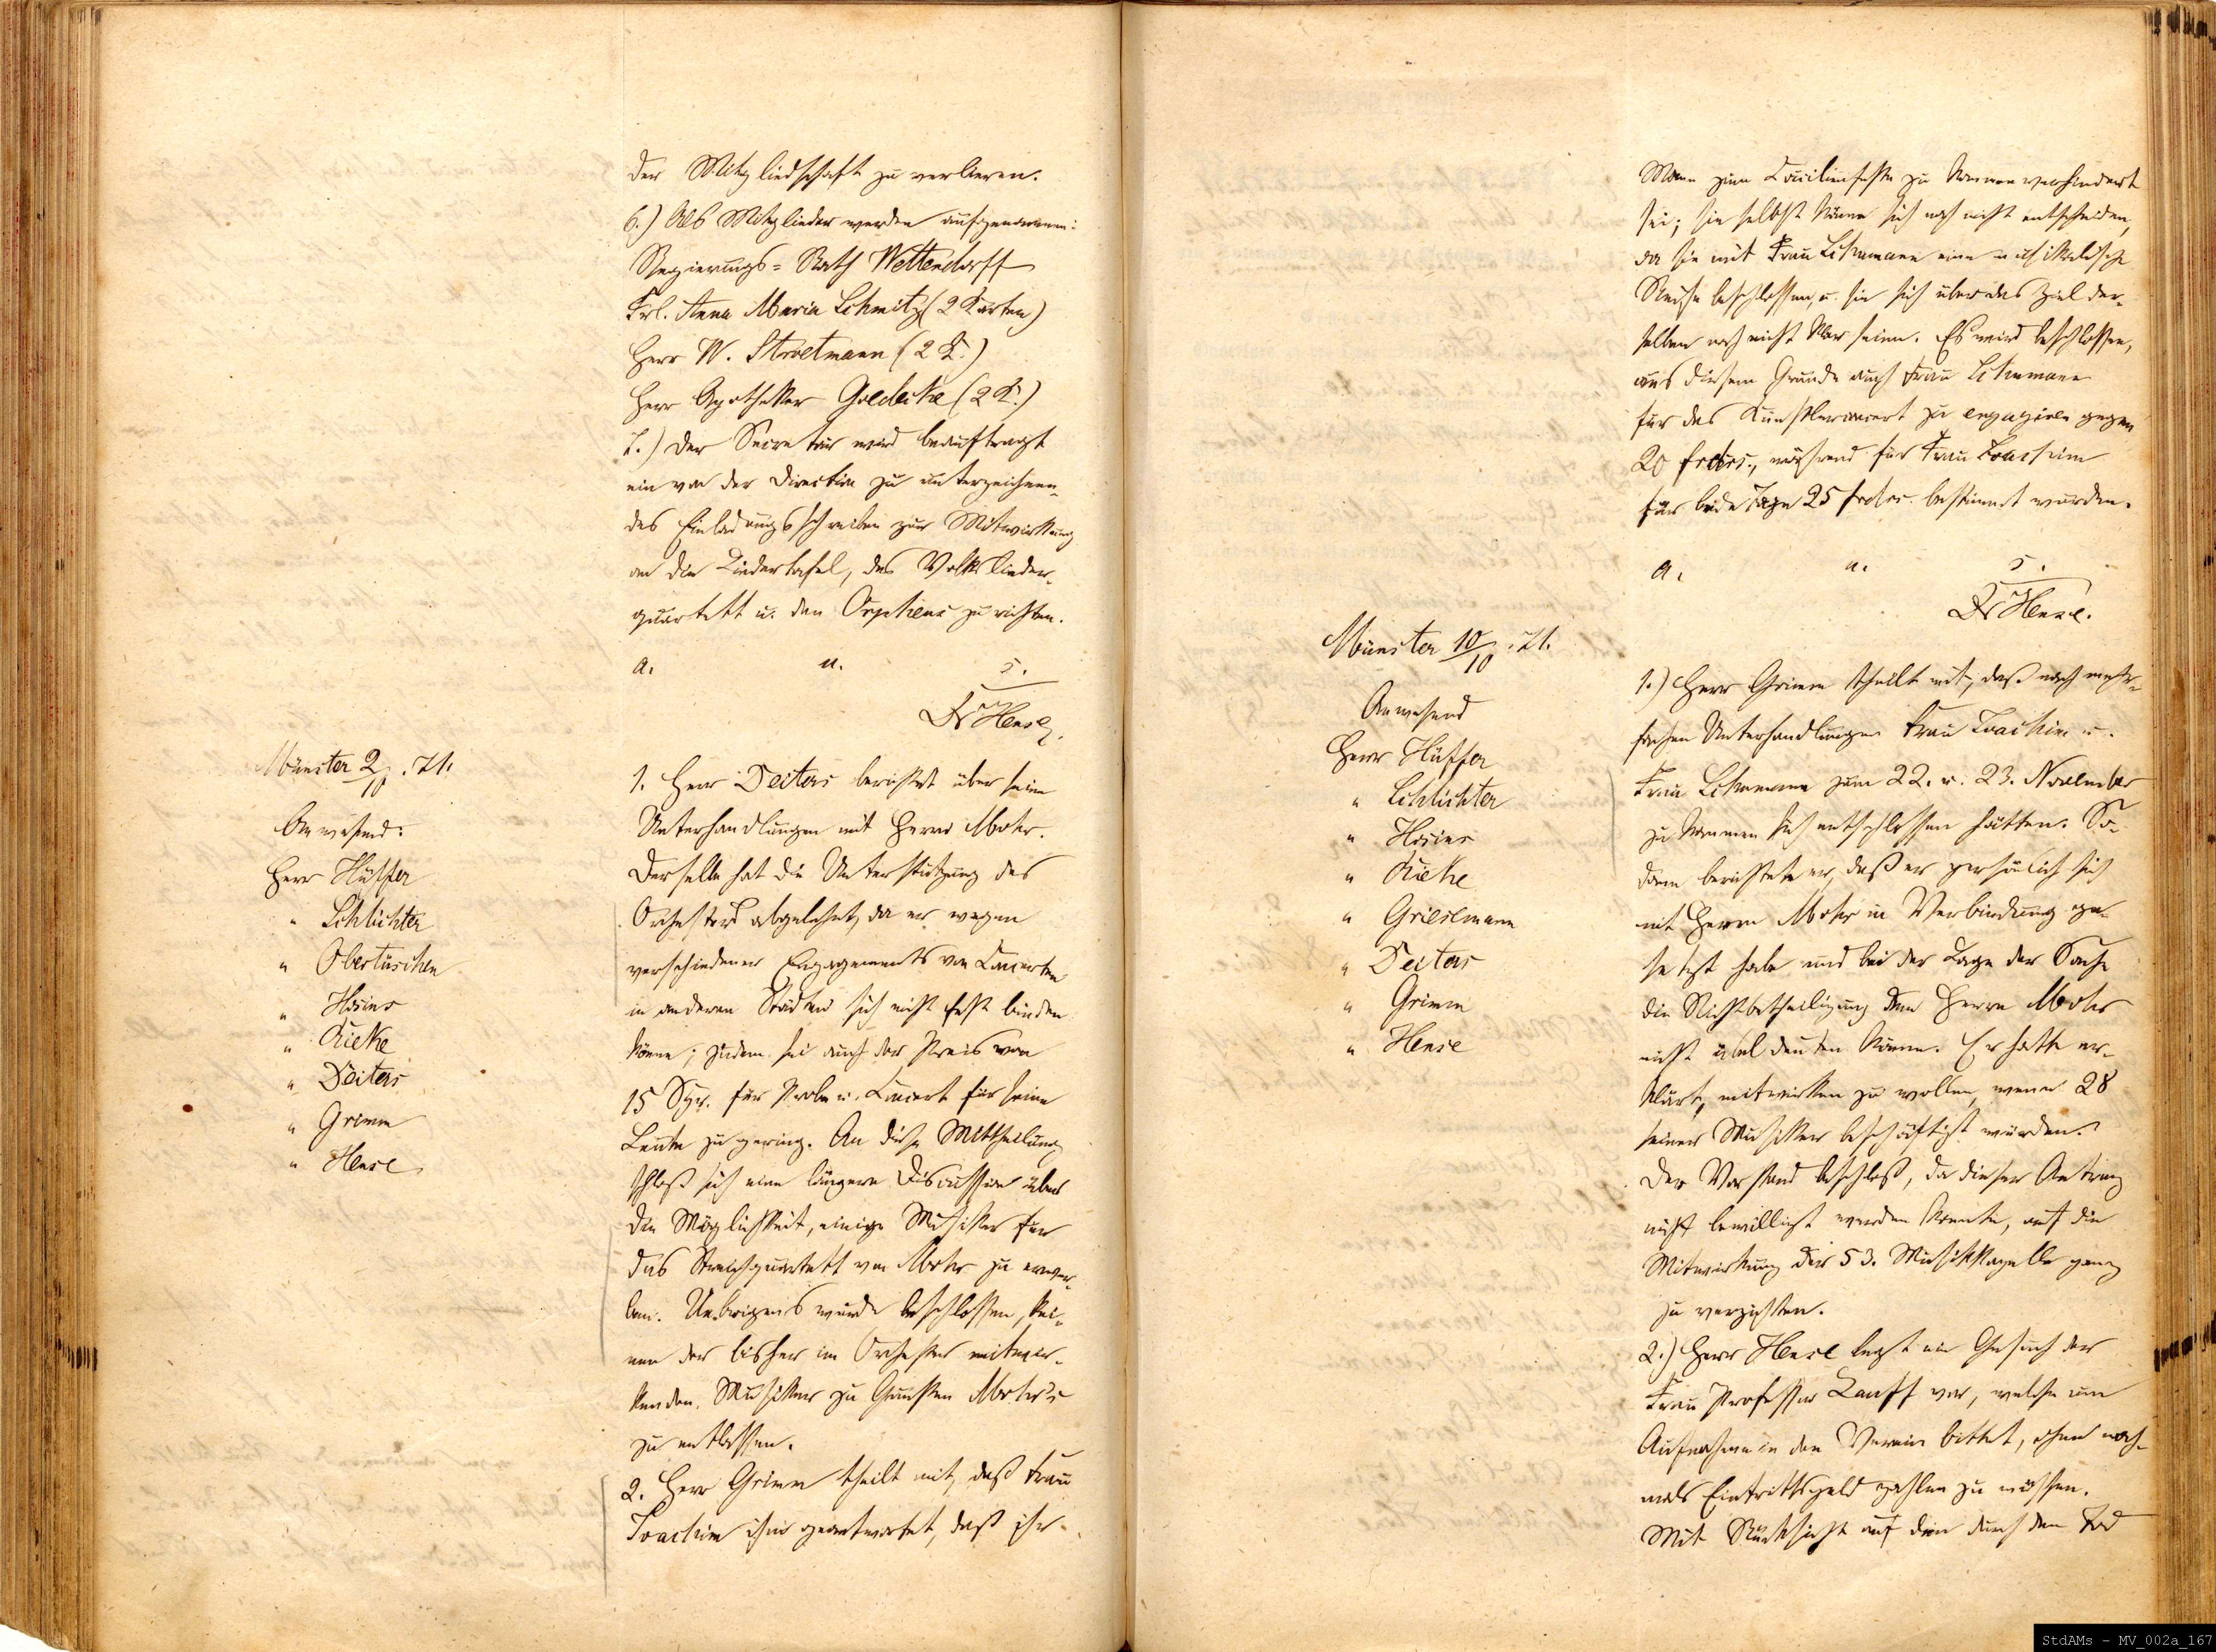 der Mitgliedschaft zu verlieren.
6.) Als Mitglieder werden aufgenommen:
Regierungs-Rath Wettendorff
Frl. Anna Maria Schmitz (2 Karten)
Herr W. Stroetmann (2 K.)
Herr Apotheker Goedecke (2 K.)
7.) Der Secretär wird beauftragt
ein von der Direction zu unterzeichnen-
des Einladungsschreiben zur Mitwirkung
an die Liedertafel, das Volkslieder-
quartett u. den Orpheus zu richten.
a. u. s.
Dr Hense.
Münster 2/10. 71.
Anwesend:
Herr Hüffer
" Schlichter
" Obertüschen
" Hosius
" Kieke
" Deiters
" Grimm
" Hense
1. Herr Deiters berichtet über seine
Unterhandlungen mit Herrn Mohr.
Derselbe hat die Unterstützung des
Orchesters abgelehnt, da er wegen
verschiedener Engagements von Concerten
in anderen Städten sich nicht fest binden
könne; zudem sei auch der Preis von
15 Sgr. für Probe u. Concert für seine
Leute zu gering. An diese Mittheilung
schloß sich eine längere Discussion über
die Möglichkeit, einige Musiker für
das Streichquartett von Mohr zu erwer-
ben. Uebrigens wurde beschlossen, kei-
nen der bisher im Orchester mitwir-
kenden Musiker zu Gunsten Mohr's
zu entlassen.
2. Herr Grimm theilt mit, daß Frau
Joachim ihm geantwortet, daß ihr
Mann zum Cäcilienfeste zu kommen verhindert
sei; sie selbst könne sich noch nicht entscheiden,
da sie mit Frau Schumann eine musikalische
Reise beschlossen u. sie sich über das Ziel der-
selben noch nicht klar seien. Es wird beschlossen,
aus diesem Grunde auch Frau Schumann
für das Künstlerconcert zu engagiren gegen
20 frdrs., während für Frau Joachim
für beide Tage 25 frdrs. bestimmt wurden.
a. u. s.
Dr Hense.
Münster 10/10. 71.
Anwesend
Herr Hüffer
" Schlichter
" Hosius
" Kieke
" Grieslmann
" Deiters
" Grimm
" Hense
1.) Herr Grimm theilt mit, daß nach mehr-
fachen Unterhandlungen Frau Joachim u.
Frau Schumann zum 22. u. 23. November
zu kommen sich entschlossen hätten. So-
dann berichtete er, daß er persönlich sich
mit Herrn Mohr in Verbindung ge-
setzt habe und bei der Lage der Sache
die Nichtbetheiligung dem Herrn Mohr
nicht übel deuten könne. Er hatte er-
klärt, mitwirken zu wollen, wenn 28
seiner Musiker beschäftigt würden.
Der Vorstand beschloß, da dieser Antrag
nicht bewilligt werden konnte, auf die
Mitwirkung der 53. Musikkapelle ganz
zu verzichten.
2.) Herr Hense legt ein Gesuch der
Frau Professor Lauff vor, welche um
Aufnahme in den Verein bittet, ohne noch-
mals Eintrittsgeld zahlen zu müssen.
Mit Rücksicht auf den durch den Tod
StdAMs - MV_002a_167